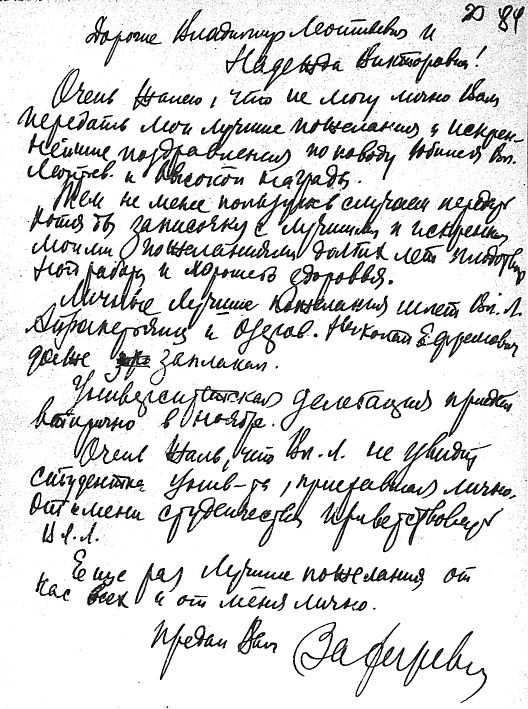 20 84
Дорогие Владимир Леонтьевич и
Надежда Викторовна!
Очень жалею, что не могу лично Вам
передать мои лучшие пожелания и искрен-
нейшие поздравления по поводу юбилея Вл.
Леонтьев. и высокой награды.
Тем не менее пользуюсь случаем передать
хотя бы записочку с лучшими и искренними
моими пожеланиями долгих лет плодотвор
ного работы и хорошего здоровья.
Личные лучшие пожелания шлет Вл. Л.
и Озеров. Николай Ефремович
даже заплакал.
Университетская делегация приедет
в ноябре.
Очень жаль, что Вл. Л. не увидит
студентка Унив-та, лично
от имени студенчества приветствовать
В.Л.
Еще раз лучшие пожелания от
нас всех и от меня лично.
Предан Вам